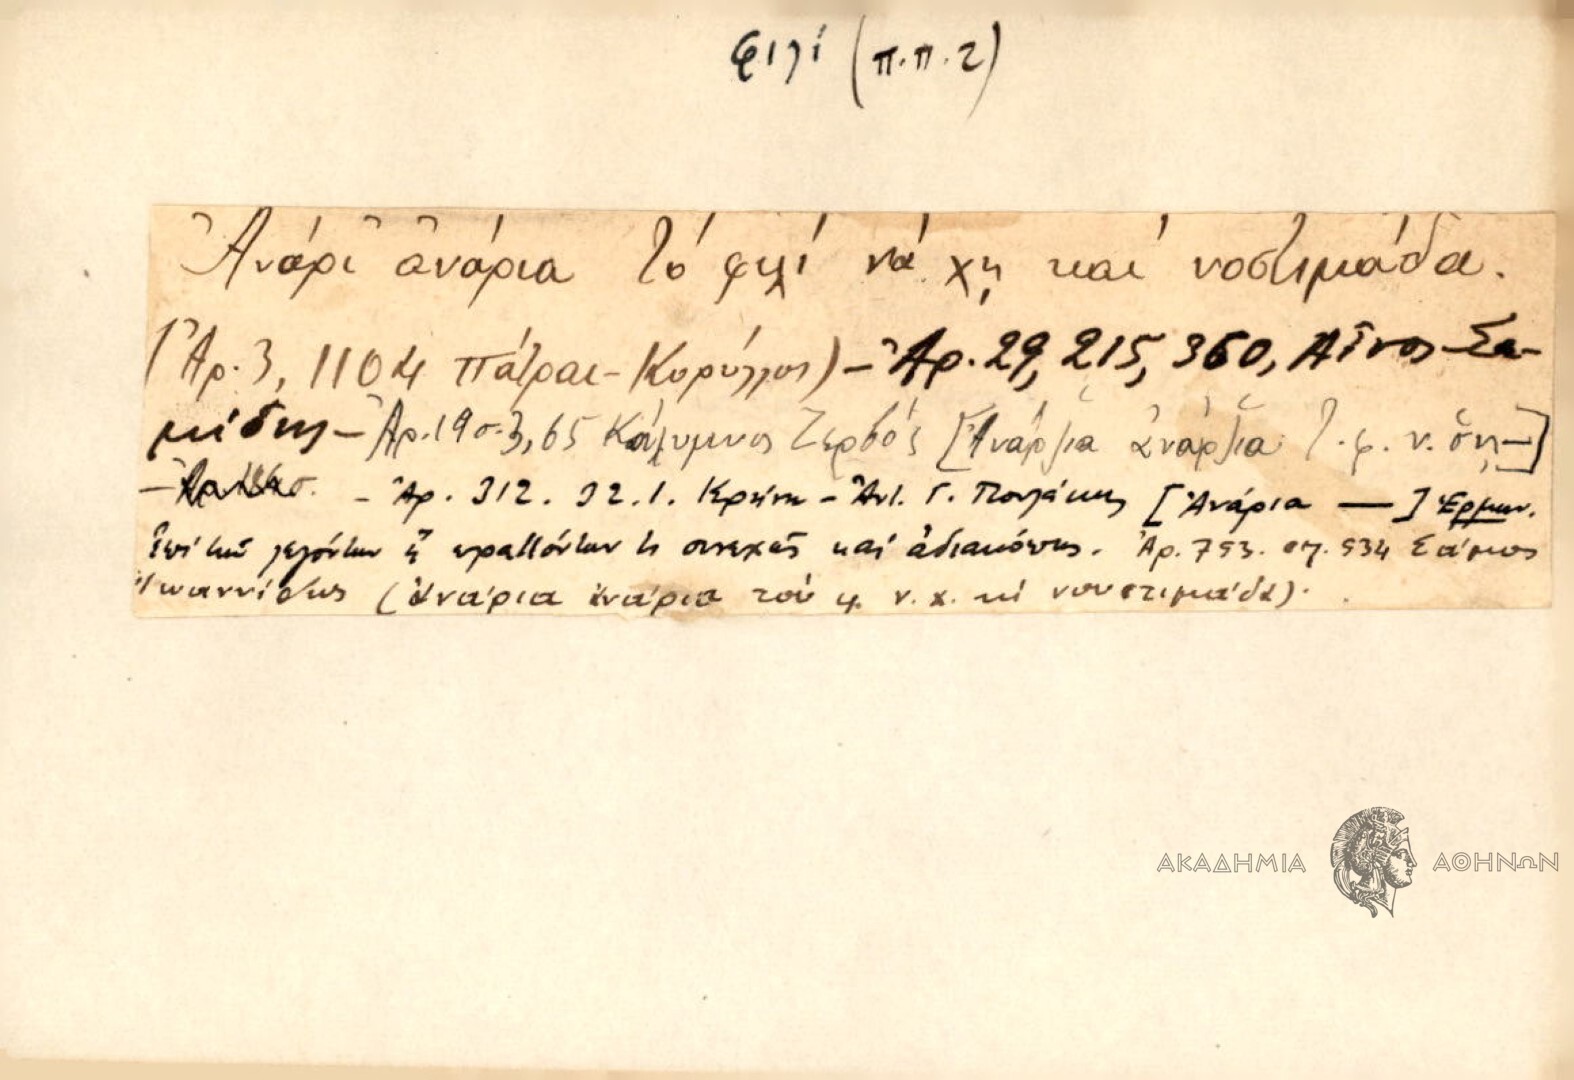 φιλί (π.π.2)
Ἀνάρι ἀνάρια τό φιλί νά χῃ καί νοστιμάδα.
(Ἀρ. 3, 1104 Πάτραι - Κορύλλος) - Ἀρ. 29, 215, 360, Αἶνος - Σα-
μίδης - Ἀρ. 19 σ. 3, 65 Κάλυμνος Ζερβός [Ἀνάρτια ἀνάρτια τ. φ. ν. ὄνῃ —]
- Ἀρ. 312. 32.1. Κρήνη - Ἀντ. Γ. Πουλάκης [Ἀνάρια —] Ἑρμην.
Ἐπί τῶν λεγόντων ἤ πραττόντων τι συνεχῶς καί ἀδιακόπως. Ἀρ. 753. σελ. 534 Σάμος
Ἰωαννίδης (ἀνάρια ἀνάρια τού φ. ν. χ. κί νουστιμάδα).
ΑΚΑΔΗΜΙΑ ΑΘΗΝΩΝ